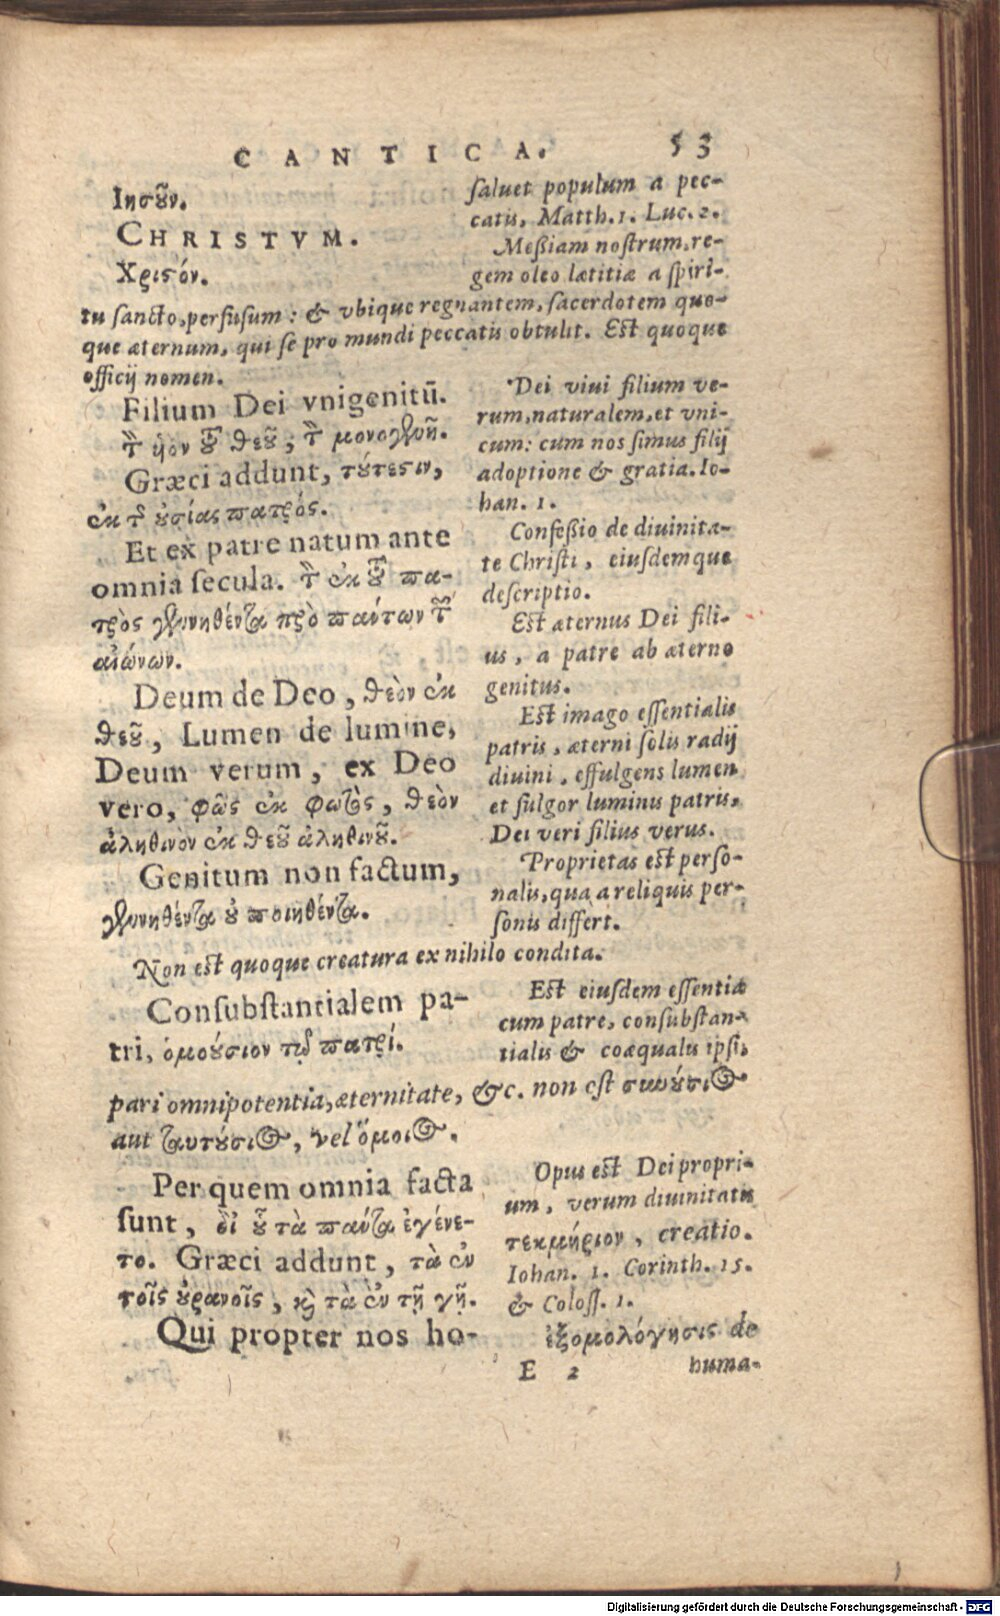 CANTICA. 53
Ιησοῦν.
CHRISTVM.
Χριστόν.
ſaluet populum a pec-
catis, Matth. 1. Luc. 2.
Meßiam noſtrum, re-
gem oleo lætitiæ a ſpiri-
tu ſancto, perfuſum: & vbique regnantem, ſacerdotem quo-
que æternum, qui ſe pro mundi peccatis obtulit. Eſt quoque
officij nomen.
Filium Dei vnigenitū.
τὸν ἡὸν τοῦ θεοῦ, τὸν μονογενῆ.
Græci addunt, τούτεστιν,
ἐκ τῆς οὐσίας πατρός.
Et ex patre natum ante
omnia ſecula. τὸν ἐκ τοῦ πα-
τρὸς γεννηθέντα πρὸ πάντων τῶν
αἰώνων.
Deum de Deo, θεὸν ἐκ
θεοῦ, Lumen de lumine,
Deum verum, ex Deo
vero, φῶς ἐκ φωτὸς, θεὸν
ἀληθινὸν ἐκ θεοῦ ἀληθινοῦ.
Genitum non factum,
γεννηθέντα οὐ ποιηθέντα.
Dei viui filium ve-
rum, naturalem, et vni-
cum: cum nos ſimus filij
adoptione & gratia. Io-
han. 1.
Confeßio de diuinita-
te Chriſti, eiuſdemque
deſcriptio.
Eſt æternus Dei fili-
us, a patre ab æterno
genitus.
Eſt imago eſſentialis
patris, æterni ſolis radij
diuini, effulgens lumen
et fulgor luminis patris,
Dei veri filius verus.
Proprietas eſt perſo-
nalis, qua a reliquis per-
ſonis differt.
Non eſt quoque creatura ex nihilo condita.
Conſubſtantialem pa-
tri, ὁμοούσιον τῷ πατρί.
Eſt eiuſdem eſſentiæ
cum patre, conſubſtan-
tialis & coæqualis ipſi,
pari omnipotentia, æternitate, &c. non eſt συνούσιος
aut ταυτούσιος, vel ὅμοιος.
Per quem omnia facta
ſunt, δι' οὗ τὰ πάντα ἐγένε-
το. Græci addunt, τὰ ἐν
τοῖς οὐρανοῖς, καὶ τὰ ἐν τῇ γῇ.
Qui propter nos ho-
Opus eſt Dei propri-
um, verum diuinitatis
τεκμήριον, creatio.
Iohan. 1. Corinth. 15.
& Coloſſ. 1.
ἐξομολόγησις de
E 2 huma-
Digitalisierung gefördert durch die Deutsche Forschungsgemeinschaft - DFG